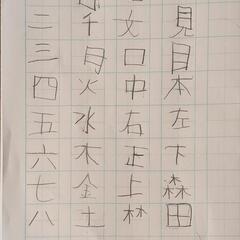 二三四五六七八
千月火水木金土
文口中右正上林
見目本左下森田